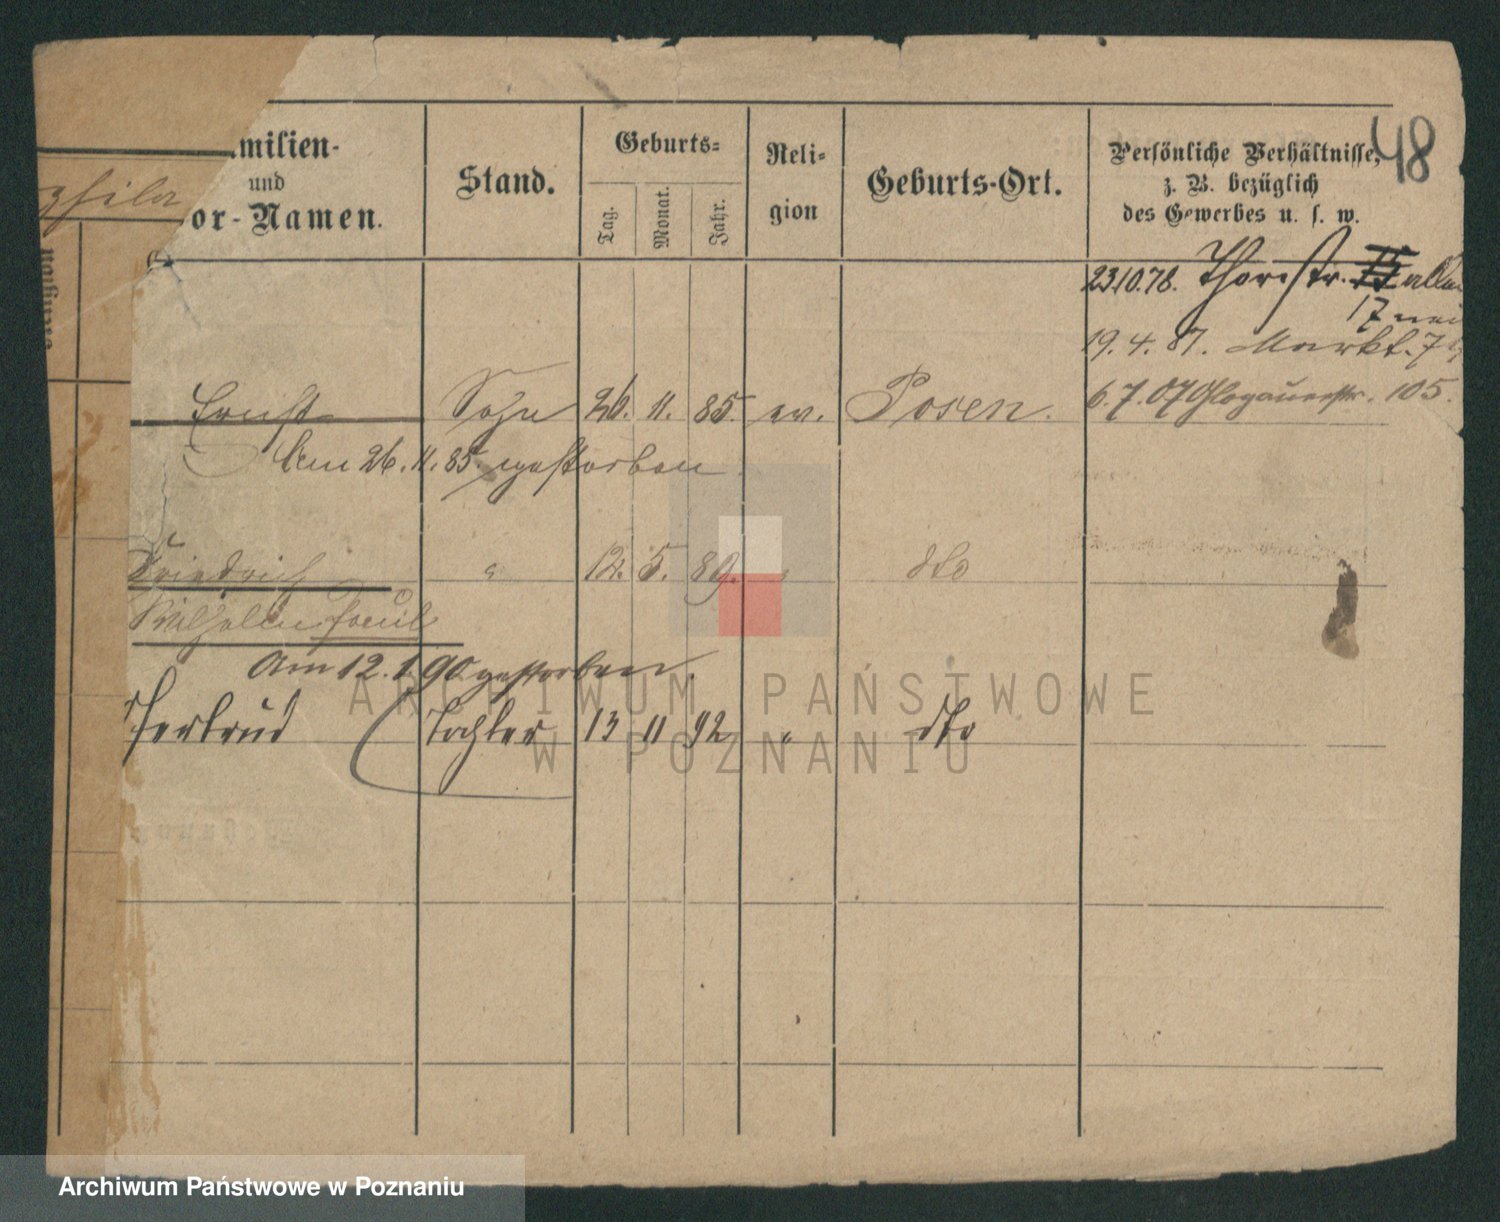 48
milien-
und
or-Namen.
Stand.
Geburts-
Tag.
Monat.
Jahr.
Reli-
gion
Geburts-Ort.
Persönliche Verhältnisse,
z. B. bezüglich
des Gewerbes u. s. w.
23.10.78. Thorstr.
17
19. 4. 87. Markt. 7
Ernst Sohn 26. 11. 85. ev. Posen. 6. 7. 07 Glogauerstr. 105.
Am 26. 11. 85. gestorben
Friedrich " 12. 5. 89. " dto
Wilhelm Paul
Am 12. 1. 90 gestorben.
Gertrud Tochter 13 11 92 " dto
ARCHIWUM PAŃSTWOWE
W POZNANIU
Archiwum Państwowe w Poznaniu